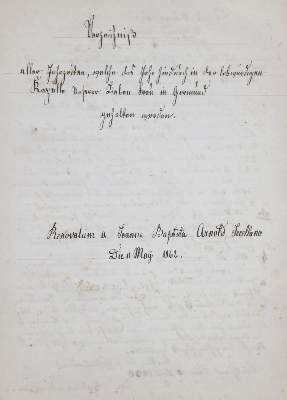 Verzeichniß
aller Jahrzeiten, welche das Jahr hindurch in der lobwürdigen
Kapelle Unserer Lieben Frau in
gehalten werden.
Renovatum a Joanne Baptista Arnold,
Die 11 Maij 1862.